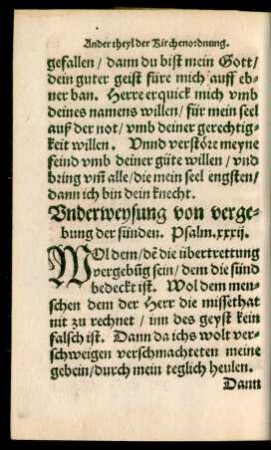 Ander theyl der Kirchenordnung.
gefallen / dann du bist mein Gott /
dein guter geist füre mich auff eb-
ner ban. Herre erquick mich vmb
deines namens willen / für mein seel
auß der not / vmb deiner gerechtig-
keit willen. Vnnd verstöre meyne
feind vmb deiner güte willen / vnd
bring vm̃ alle / die mein seel engsten /
dann ich bin dein knecht.
Vnderweysung von verge-
bung der sünden. Psalm. xxxij.
WOl dem / dẽ die übertrettung
vergebũg sein / dem die sünd
bedeckt ist. Wol dem men-
schen dem der Herr die missethat
nit zu rechnet / inn des geyst kein
falsch ist. Dann da ichs wolt ver-
schweigen verschmachteten meine
gebein / durch mein teglich heulen.
Dann